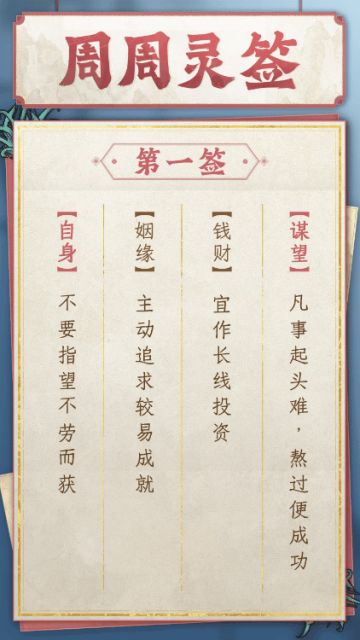 周周灵签
第一签
【谋望】凡事起头难，熬过便成功
【钱财】宜作长线投资
【姻缘】主动追求较易成就
【自身】不要指望不劳而获